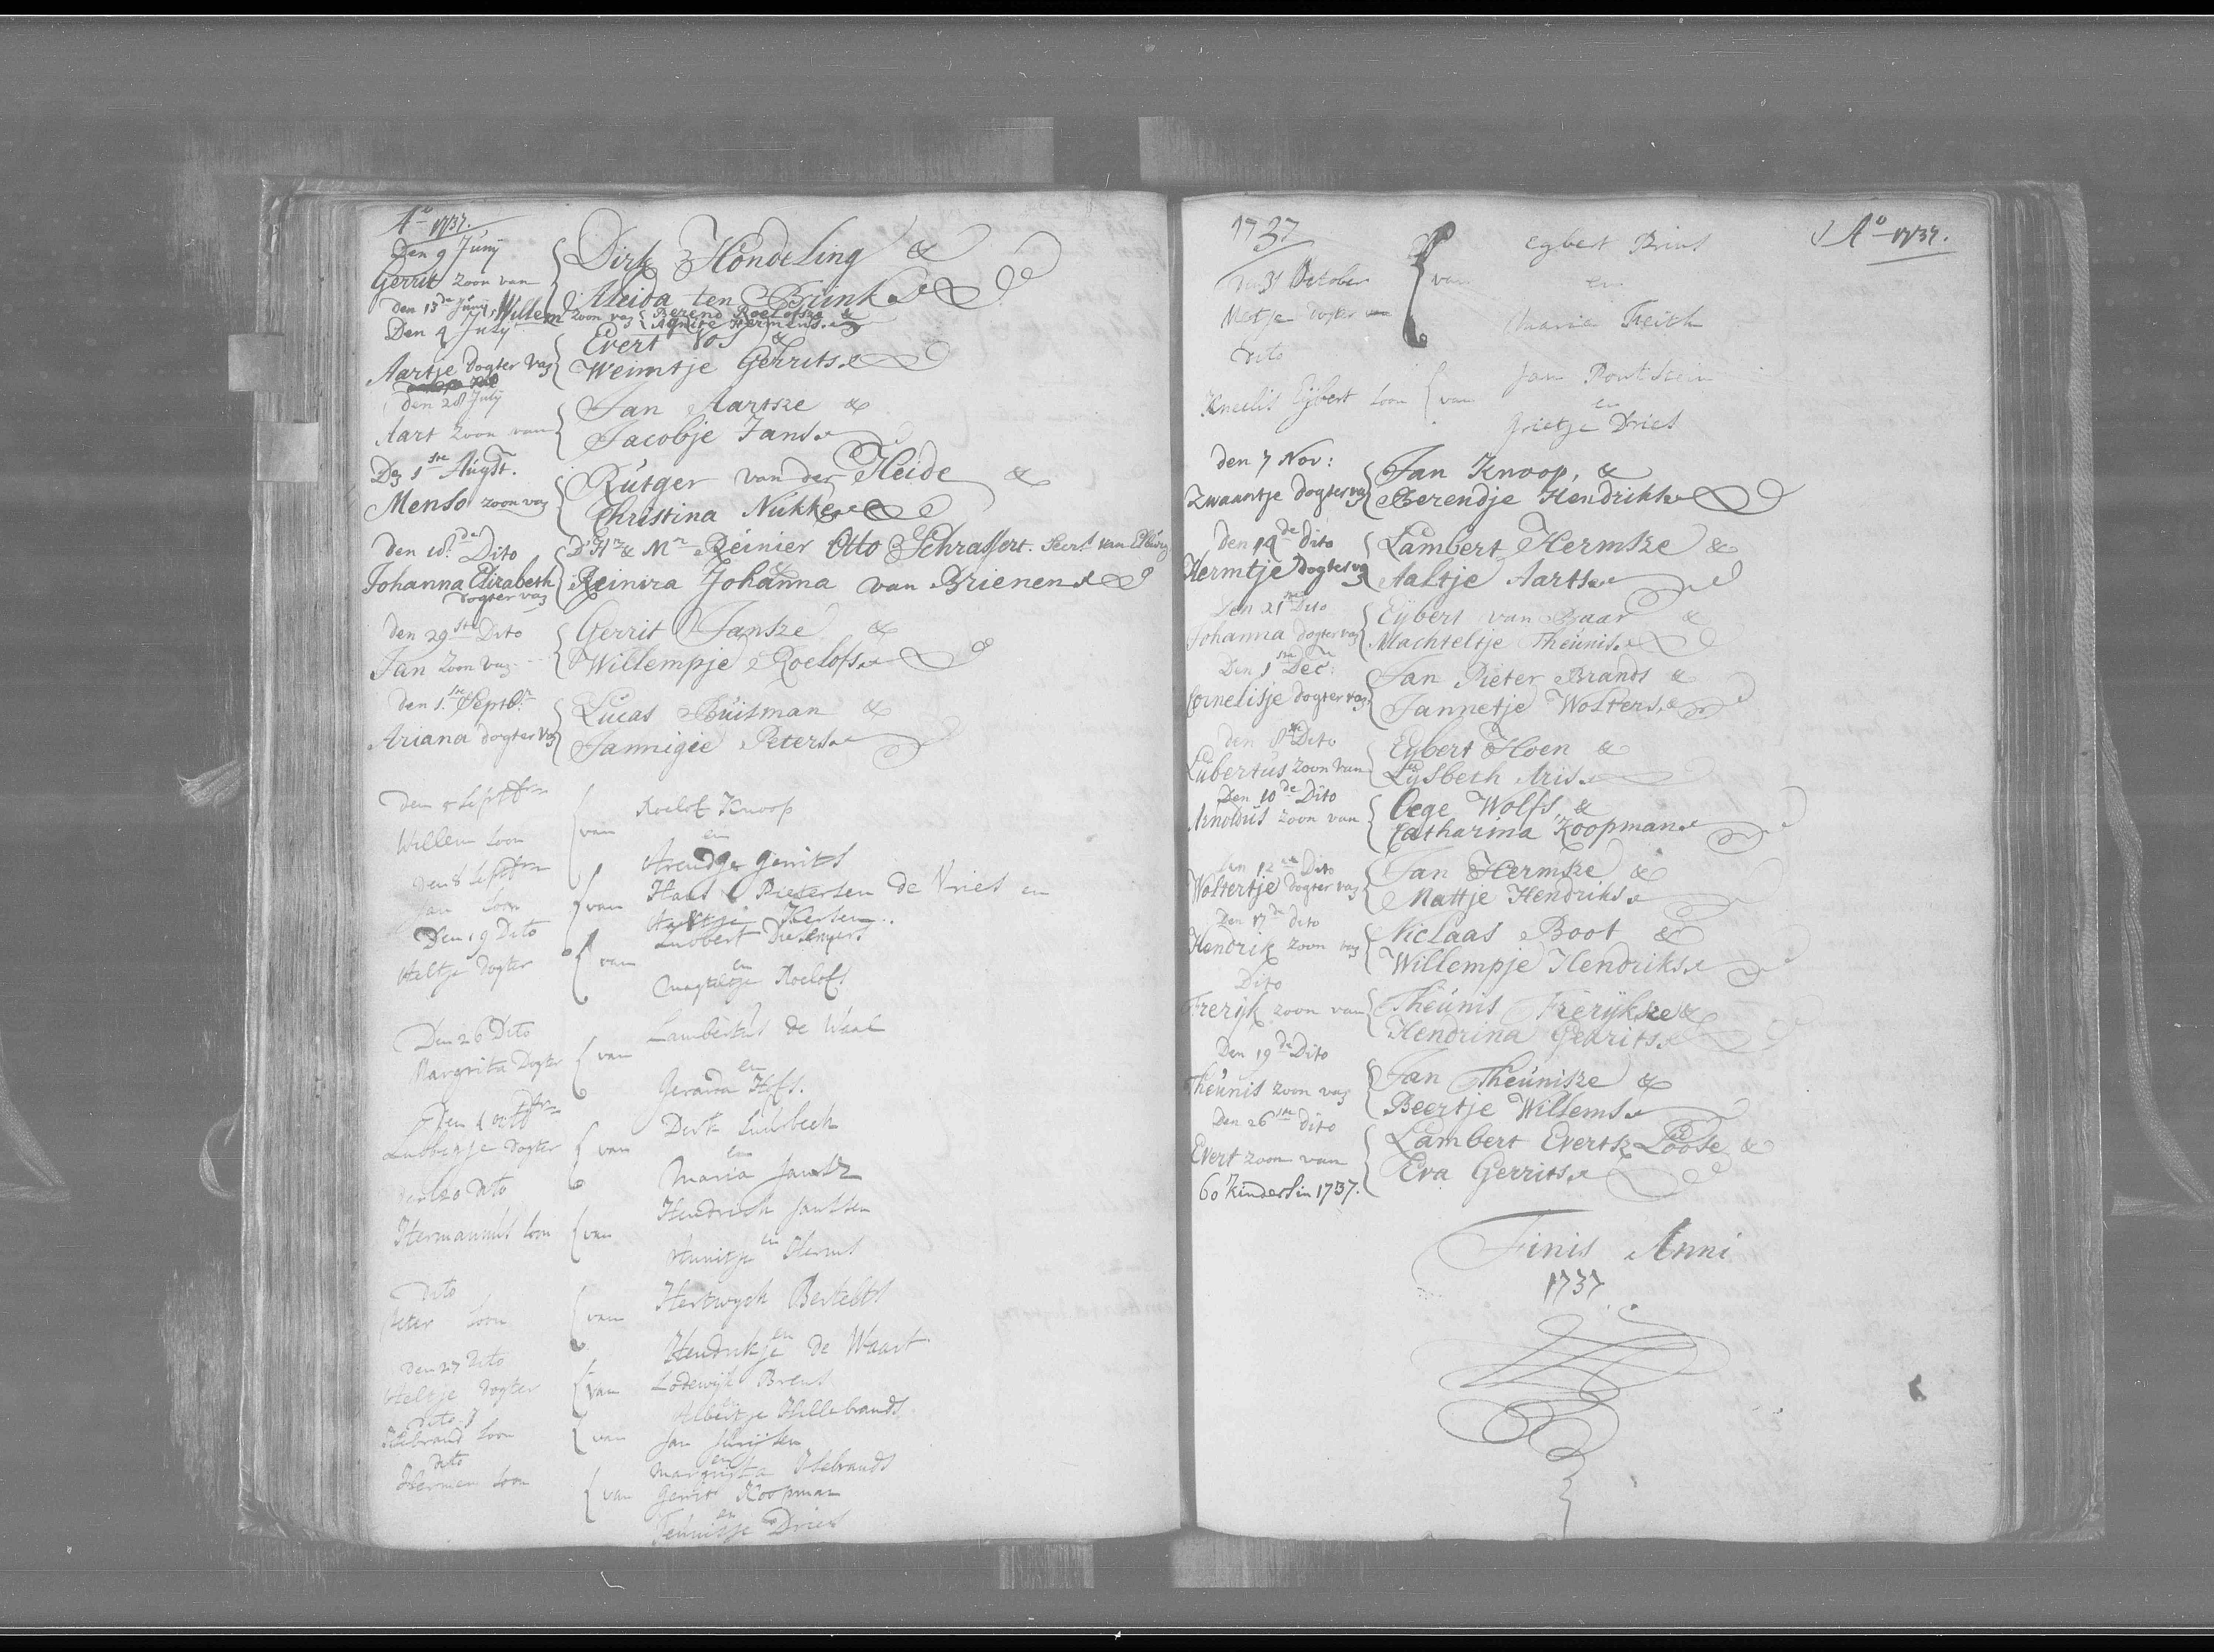 Ao 1737.
Den 9 Junij
Gerrit zoon van { Dirk Hondeling &
Aleida ten Brink
Den 13de Junij, Willem zoon van { Berend Roelofsze &
Agnise Hermens.
Den 4 July
Aartje dogter van { Evert Vos &
Weimtje Gerrits.
Den 28 July
Aart zoon van { Jan Aartsze &
Jacobje Jans.
Den 1ste Augst.
Menso zoon van { Rutger van der Heide &
Christina Nukke
Den 18de Dito
Johanna Elizabeth dogter van { D'Hr & Mr Reinier Otto Schrassert. Secrt. van Elburg
Reinira Johanna van Brienen
den 29ste Dito
Jan zoon van { Gerrit Jansze &
Willempje Roelofs.
den 1ste Septbr.
Ariana dogter van { Lucas Buitman &
Jannigie Peters.
Den 5 Septbr
Willem soon { van Roelof Knoop
en
Arendje Gerrits
Den 8 Septbr
Jan soon { van Hans Pietersen de Vries en
Den 19 Dito
Aeltje dogter { van Lubbert
en
Magteltje Roelofs
Den 26 Dito
Margrita Dogter { van Lambertus de Waal
en
Gerarda Hofs.
Lubbertje dogter { van Derk
en
Maria Jansz
Den 20 Dito
Hermannus soon { van Hendrick Janssen
en
Annitje Herms
Dito
Peter soon { van Hertwych Bertelts
en
Hendrikje de Waart
Den 27 Dito
Aeltje dogter { van Lodewijk Brens
Albertje Hillebrands
Dito
Isebrand soon { van Jan
en
Margrita Isebrands
Dito
Hermen soon { van Gerrit Koopman
en
Dries
1737
Ao 1737.
Den 31 October
Metje dogter { van Egbert Prins
en
Maria Feith
Dito
Egbert soon { van Jan
en
Grietje Dries
den 7 Nov:
Zwaantje dogter van { Jan Knoop, &
Berendje Hendriks
den 14de dito
Hermtje dogter van { Lambert Hermsze &
Aaltje Aarts.
Den 21ste Dito
Johanna dogter van { Eijbert van Baar &
Machteltje Theunis.
Den 1ste Dec:
Cornelisje dogter van { Jan Pieter Brands &
Jannetje Wolters.
den 8ste Dito
Lubertus zoon van { Egbert Hoen &
Lysbeth Aris.
Den 10de Dito
Arnoldus zoon van { Oege Wolfs, &
Catharina Koopman.
Den 12de Dito
Woltertje dogter van { Jan Hermsze &
Mattje Hendriks.
Den 17de dito
Hendrik zoon van { Niclaas Boot &
Willempje Hendriks.
Dito
Frerijk zoon van { Theunis Frerijksze &
Hendrina Gerrits.
Den 19de Dito
Theunis zoon van { Jan Theunisze &
Beertje Willems.
Den 26ste dito
Evert zoon van { Lambert Evertsz Loose &
Eva Gerrits.
60 kinders in 1737.
Finis Anni
1737